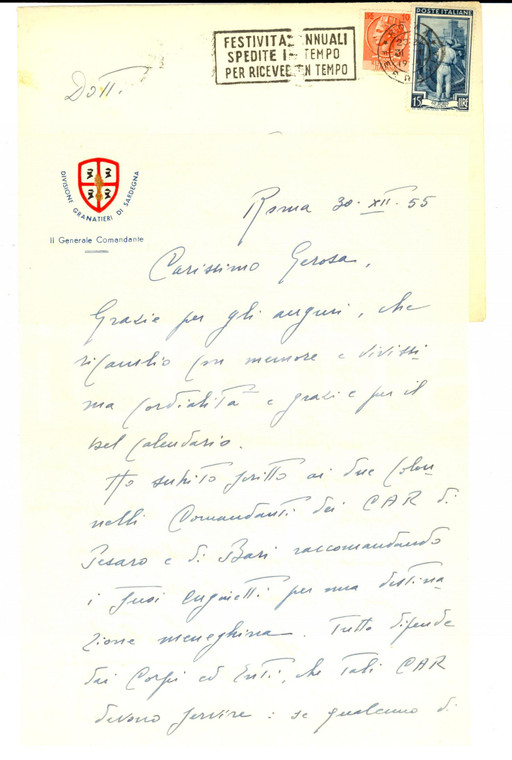 FESTIVITA' ANNUALI
SPEDITE IN TEMPO
PER RICEVERE IN TEMPO
POSTE ITALIANE
10
15 LIRE
Dott.
DIVISIONE GRANATIERI DI SARDEGNA
Il Generale Comandante
Roma 30.XII.55
Carissimo Gerosa,
Grazie per gli auguri, che
ricambio con memore e vivissi-
ma cordialità e grazie per il
bel calendario.
Ho subito scritto ai due Colon-
nelli Comandanti dei CAR di
Pesaro e di Bari raccomandando
i suoi cugnetti per una destina-
zione meneghina. Tutto dipende
dai Corpi ed Enti, che tali CAR
devono servire: se qualcuno di